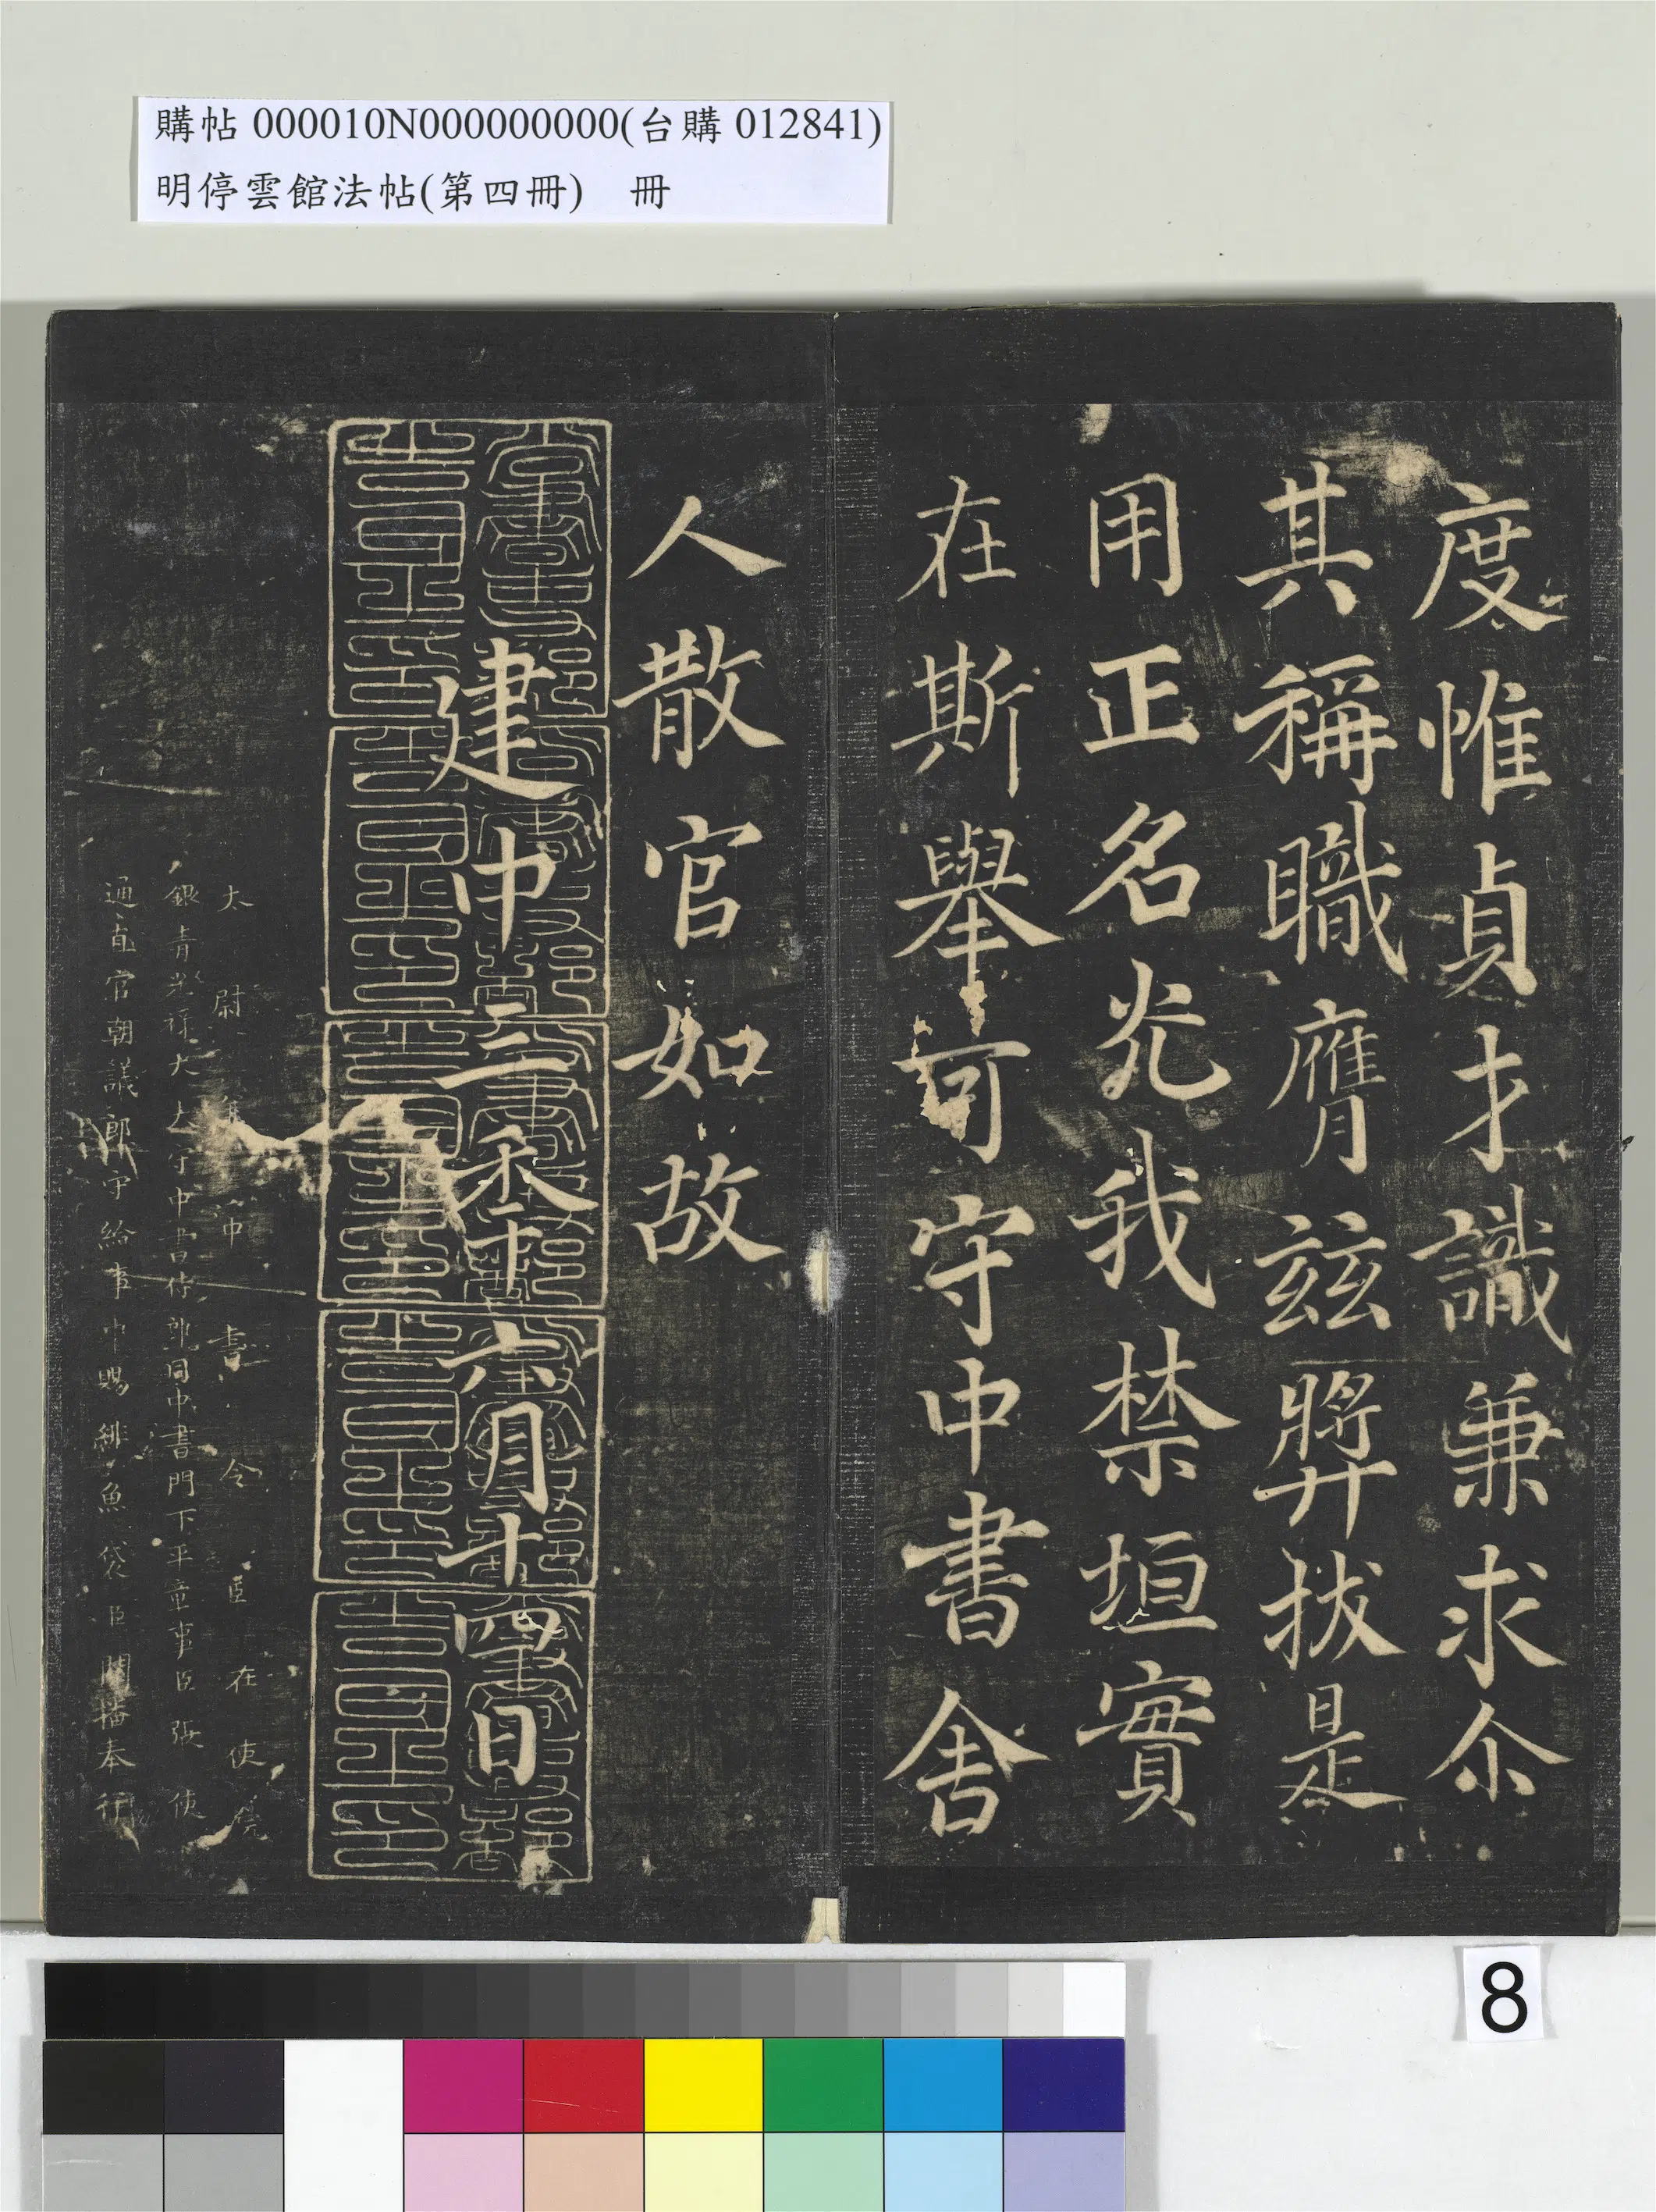 購帖 000010N000000000(台購 012841)
明停雲館法帖(第四冊)　冊
度惟貞才識兼求尒
其稱職膺玆獎拔是
用正名光我禁垣實
在斯舉可守中書舍
人散官如故
建中三年六月十四日
太尉 中書令臣在使院
銀青光祿大夫守中書侍郎同中書門下平章事臣張使
通直官朝議郎守給事中賜緋魚袋臣關播奉行
8